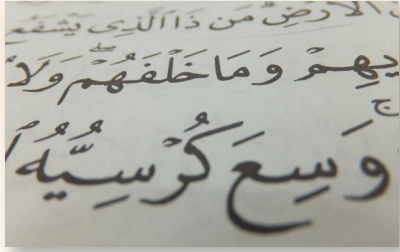 الْاَرْضِ مَن ذَا الَّذِى يَشْفَع
يهِمْ وَمَا خَلْفَهُمْ وَلَا
وَسِعَ كُرْسِيُّهُ